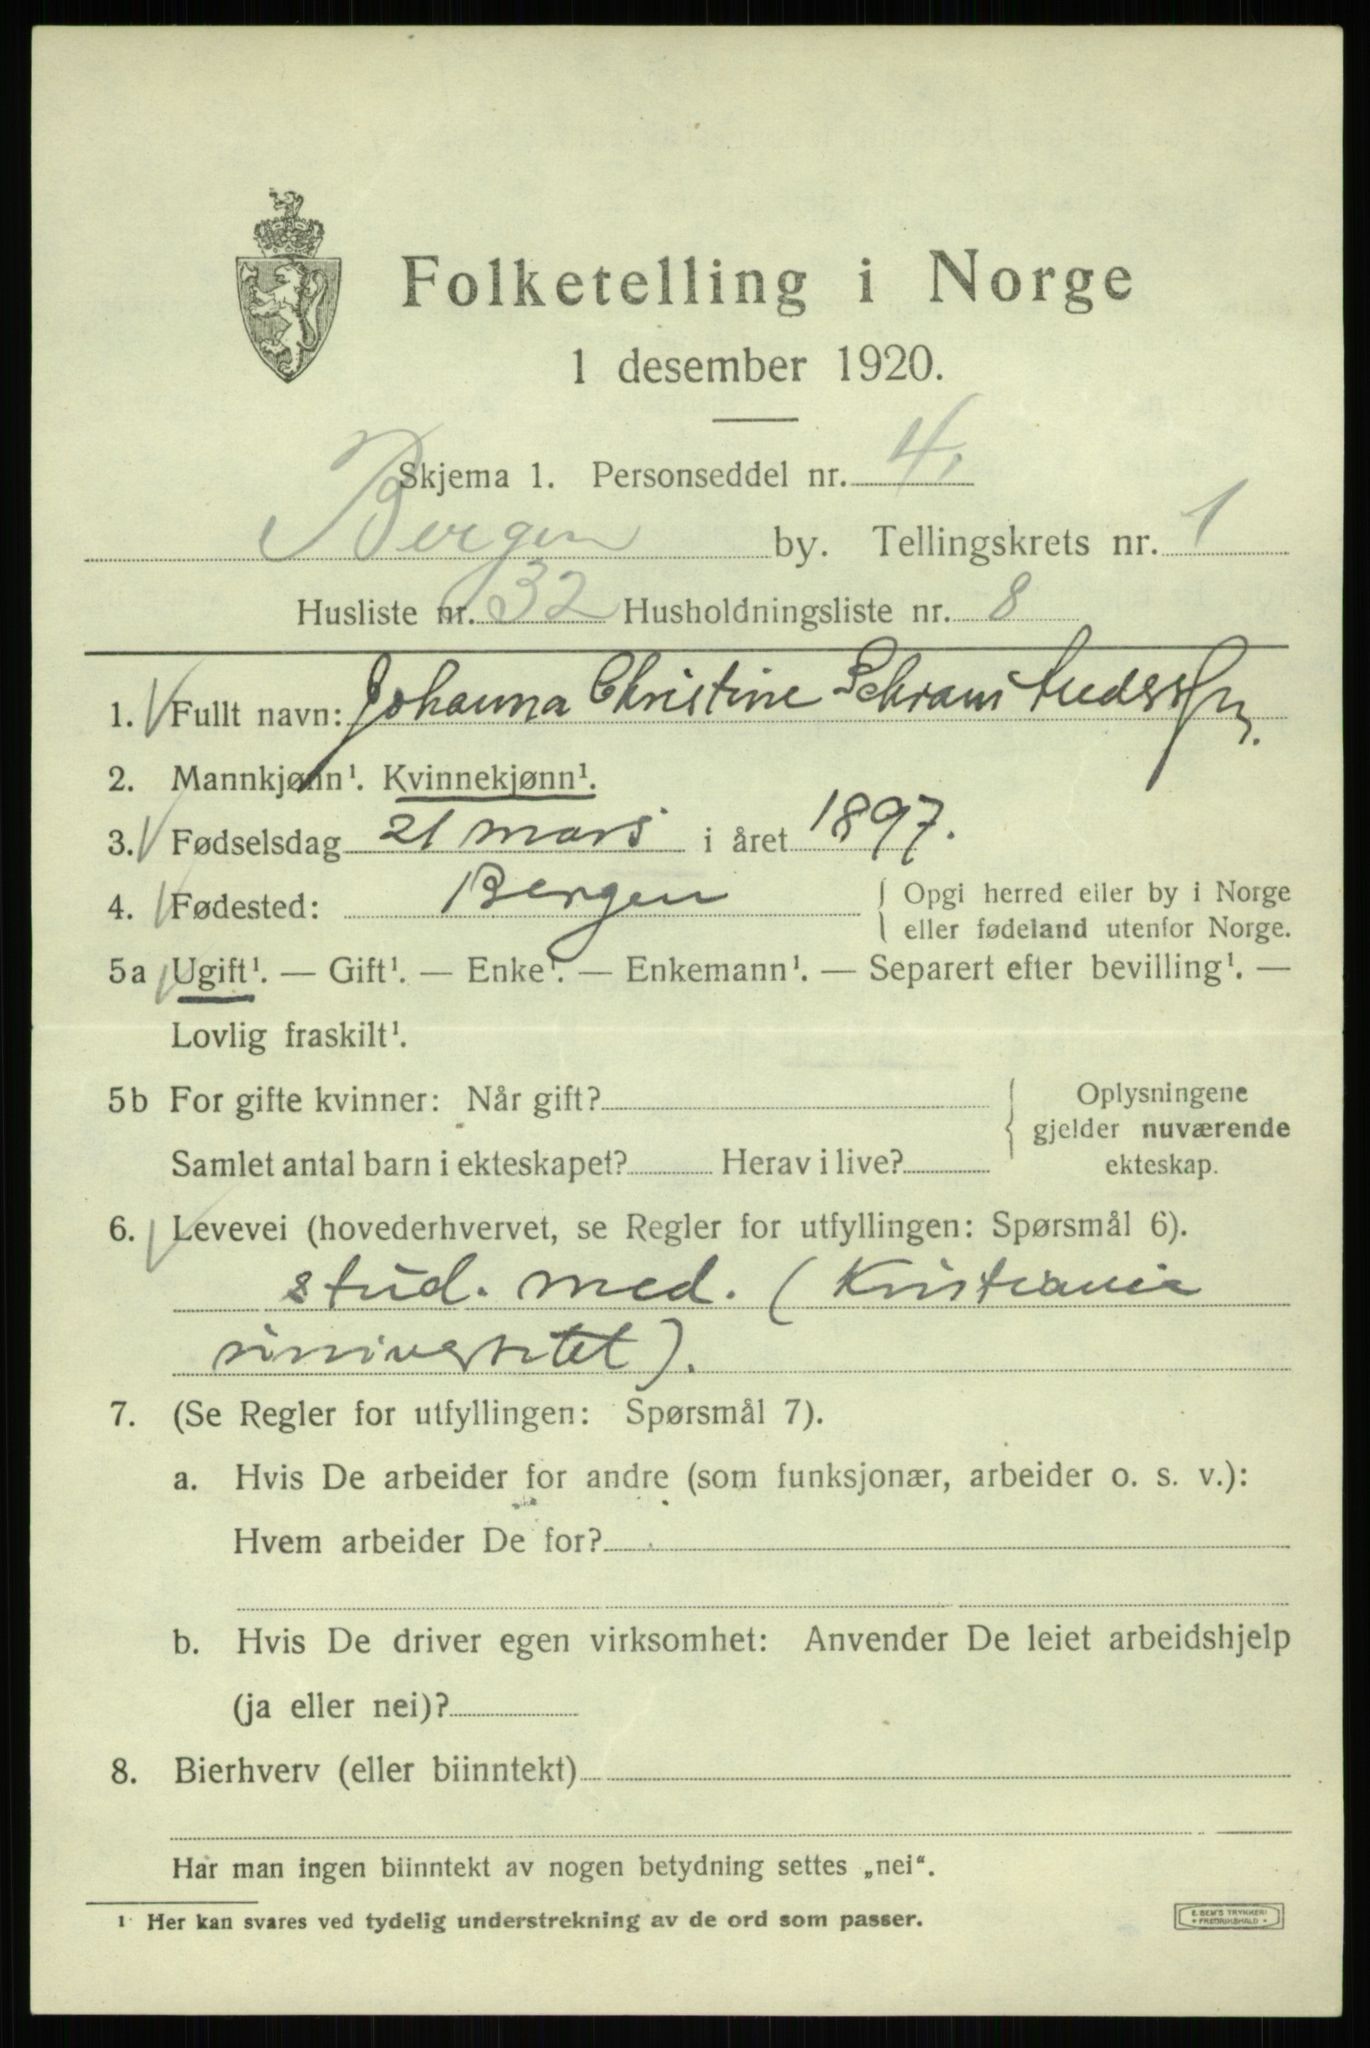 Folketelling i Norge
1 desember 1920.
Skjema 1. Personseddel nr. 4.
Bergen by. Tellingskrets nr. 1
Husliste nr. 32 Husholdningsliste nr. 8
1. Fullt navn: Johanna Christine Schram
2. Mannkjønn¹. Kvinnekjønn¹.
3. Fødselsdag 21 mars i året 1897.
4. Fødested: Bergen { Opgi herred eller by i Norge
eller fødeland utenfor Norge.
5a Ugift¹. — Gift¹. — Enke¹. — Enkemann¹. — Separert efter bevilling¹. —
Lovlig fraskilt¹.
5b For gifte kvinner: Når gift? { Oplysningene
gjelder nuværende
Samlet antal barn i ekteskapet? Herav i live? ekteskap.
6. Levevei (hovederhvervet, se Regler for utfyllingen: Spørsmål 6).
stud. med. (Kristiania
universitet).
7. (Se Regler for utfyllingen: Spørsmål 7).
a. Hvis De arbeider for andre (som funksjonær, arbeider o. s. v.):
Hvem arbeider De for?
b. Hvis De driver egen virksomhet: Anvender De leiet arbeidshjelp
(ja eller nei)?
8. Bierhverv (eller biinntekt)
Har man ingen biinntekt av nogen betydning settes „nei“.
¹ Her kan svares ved tydelig understrekning av de ord som passer.
E. SEM'S TRYKKERI
• FREDRIKSHALD •